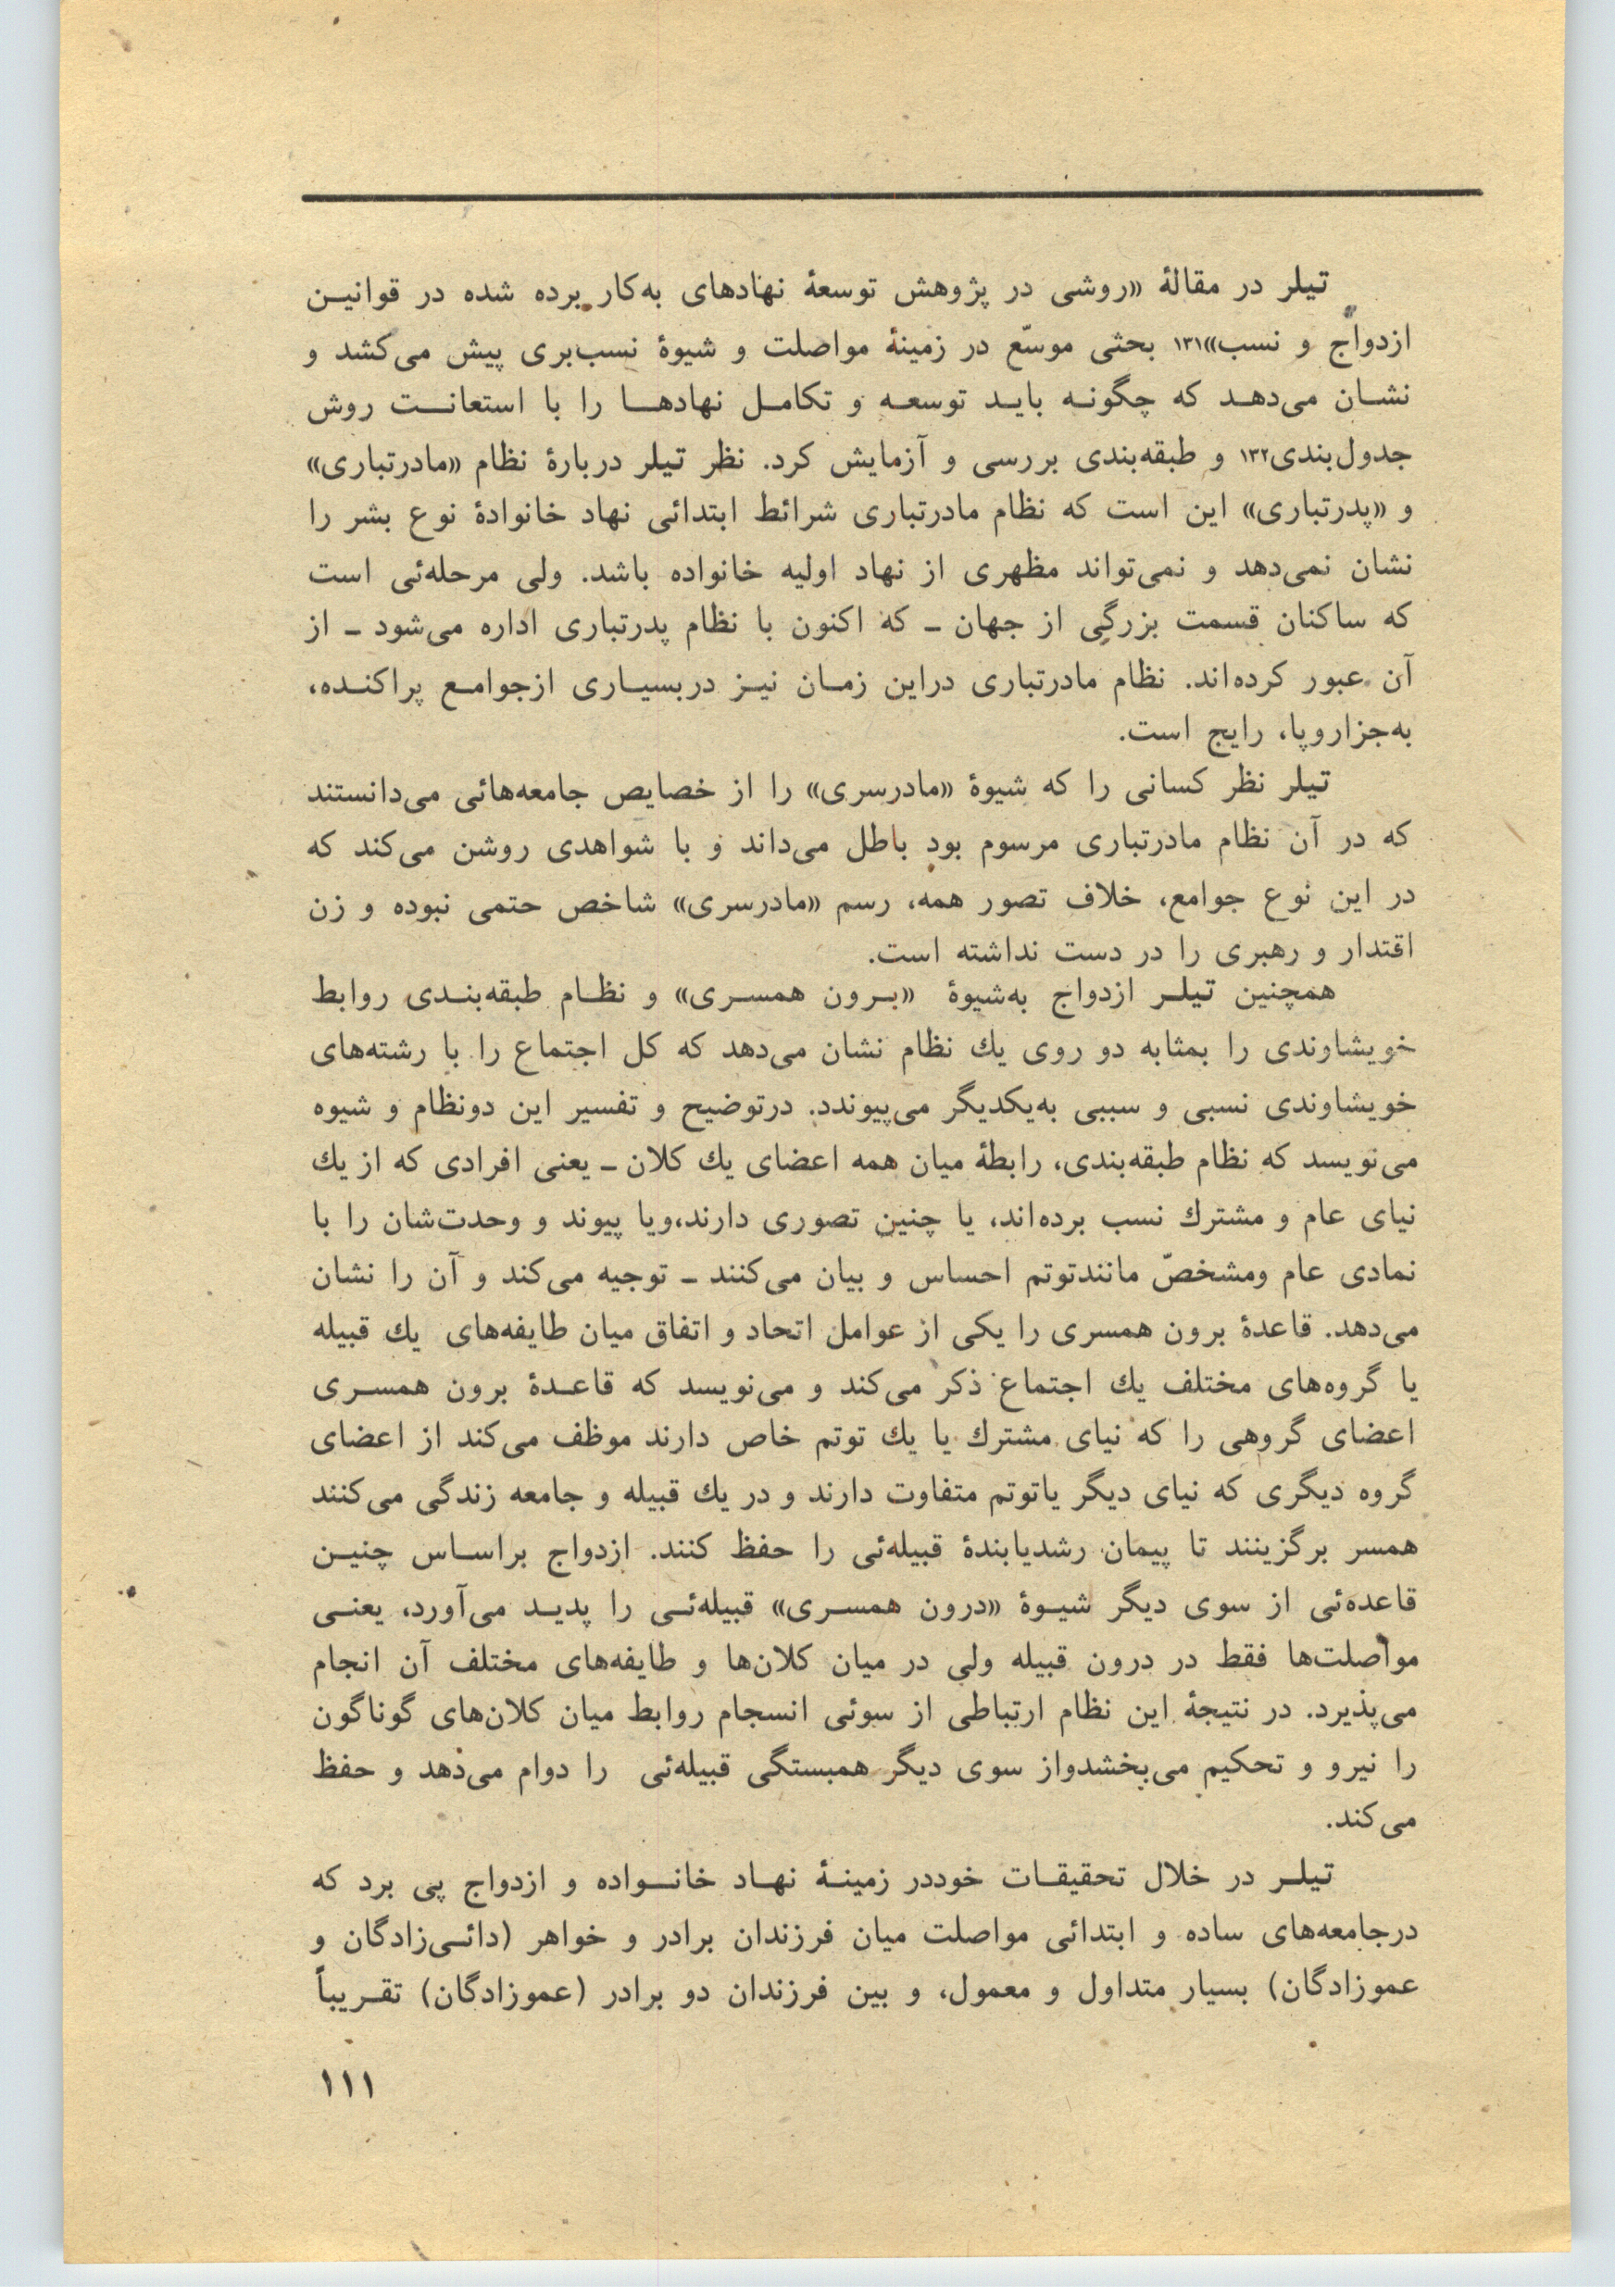 تیلر در مقالهٔ «روشی در پژوهش توسعهٔ نهادهای به‌کار برده شده در قوانین
ازدواج و نسب»۱۳۱ بحثی موسّع در زمینهٔ مواصلت و شیوهٔ نسب‌بری پیش می‌کشد و
نشان می‌دهد که چگونه باید توسعه و تکامل نهادها را با استعانت روش
جدول‌بندی۱۳۲ و طبقه‌بندی بررسی و آزمایش کرد. نظر تیلر دربارهٔ نظام «مادرتباری»
و «پدرتباری» این است که نظام مادرتباری شرائط ابتدائی نهاد خانوادهٔ نوع بشر را
نشان نمی‌دهد و نمی‌تواند مظهری از نهاد اولیه خانواده باشد. ولی مرحله‌ئی است
که ساکنان قسمت بزرگی از جهان ــ که اکنون با نظام پدرتباری اداره می‌شود ــ از
آن عبور کرده‌اند. نظام مادرتباری دراین زمان نیز دربسیاری ازجوامع پراکنده،
به‌جزاروپا، رایج است.
تیلر نظر کسانی را که شیوهٔ «مادرسری» را از خصایص جامعه‌هائی می‌دانستند
که در آن نظام مادرتباری مرسوم بود باطل می‌داند و با شواهدی روشن می‌کند که
در این نوع جوامع، خلاف تصور همه، رسم «مادرسری» شاخص حتمی نبوده و زن
اقتدار و رهبری را در دست نداشته است.
همچنین تیلر ازدواج به‌شیوهٔ «برون همسری» و نظام طبقه‌بندی روابط
خویشاوندی را بمثابه دو روی یك نظام نشان می‌دهد که کل اجتماع را با رشته‌های
خویشاوندی نسبی و سببی به‌یکدیگر می‌پیوندد. درتوضیح و تفسیر این دونظام و شیوه
می‌نویسد که نظام طبقه‌بندی، رابطهٔ میان همه اعضای یك کلان ــ یعنی افرادی که از یك
نیای عام و مشترك نسب برده‌اند، یا چنین تصوری دارند،ویا پیوند و وحدت‌شان را با
نمادی عام ومشخصّ مانندتوتم احساس و بیان می‌کنند ــ توجیه می‌کند و آن را نشان
می‌دهد. قاعدهٔ برون همسری را یکی از عوامل اتحاد و اتفاق میان طایفه‌های یك قبیله
یا گروه‌های مختلف یك اجتماع ذکر می‌کند و می‌نویسد که قاعدهٔ برون همسری
اعضای گروهی را که نیای مشترك یا یك توتم خاص دارند موظف می‌کند از اعضای
گروه دیگری که نیای دیگر یاتوتم متفاوت دارند و در یك قبیله و جامعه زندگی می‌کنند
همسر برگزینند تا پیمان رشدیابندهٔ قبیله‌ئی را حفظ کنند. ازدواج براساس چنین
قاعده‌ئی از سوی دیگر شیوهٔ «درون همسری» قبیله‌ئی را پدید می‌آورد، یعنی
مواصلت‌ها فقط در درون قبیله ولی در میان کلان‌ها و طایفه‌های مختلف آن انجام
می‌پذیرد. در نتیجهٔ این نظام ارتباطی از سوئی انسجام روابط میان کلان‌های گوناگون
را نیرو و تحکیم می‌بخشدواز سوی دیگر همبستگی قبیله‌ئی را دوام می‌دهد و حفظ
می‌کند.
تیلر در خلال تحقیقات خوددر زمینهٔ نهاد خانواده و ازدواج پی برد که
درجامعه‌های ساده و ابتدائی مواصلت میان فرزندان برادر و خواهر (دائی‌زادگان و
عموزادگان) بسیار متداول و معمول، و بین فرزندان دو برادر (عموزادگان) تقریباً
۱۱۱